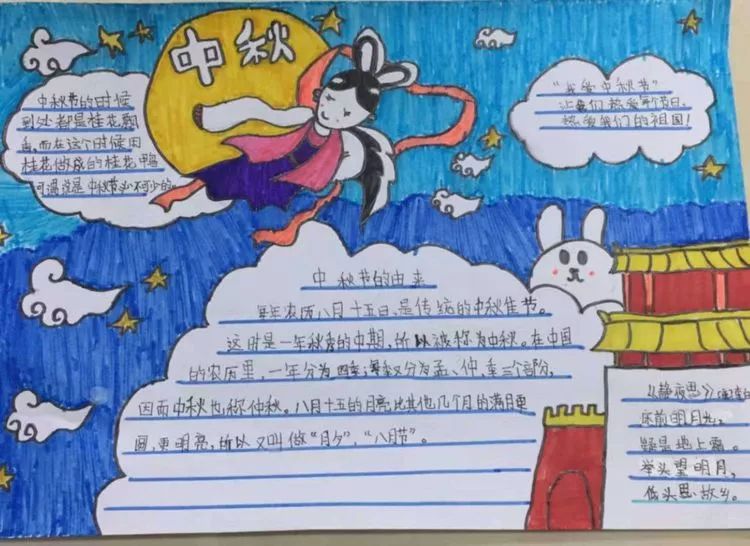 中秋
中秋节的时候
到处都是桂花飘
香,而在这个时候用
桂花做成的桂花鸭
可谓说是中秋节必不可少的。
“我爱中秋节”
让我们热爱节日,
热爱我们的祖国!
中秋节的由来
每年农历八月十五日,是传统的中秋佳节。
这时是一年秋季的中期,所以被称为中秋。在中国
的农历里,一年分为四季,每季又分为孟、仲、季三个部分,
因而中秋也称仲秋。八月十五的月亮比其他几个月的满月更
圆,更明亮,所以又叫做“月夕”,“八月节”。
《静夜思》
床前明月光,
疑是地上霜。
举头望明月,
低头思故乡。